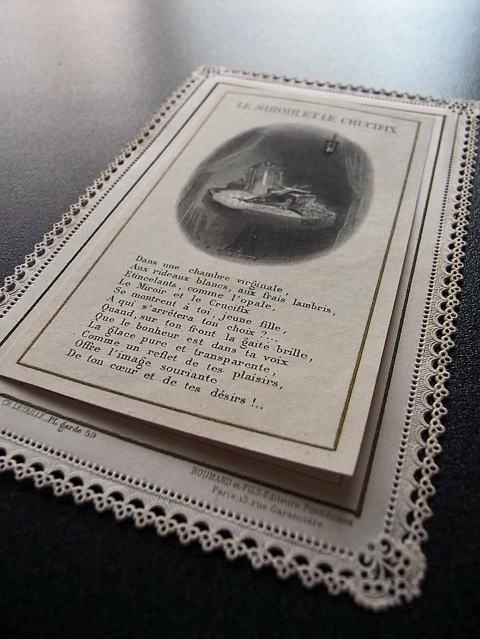 LE MIROIR ET LE CRUCIFIX
Dans une chambre virginale,
Aux rideaux blancs, aux frais lambris,
Etincelants, comme l'opale,
Le Miroir et le Crucifix
Se montrent à toi, jeune fille,
A qui s'arrêtera ton choix ?....
Quand, sur ton front la gaité brille,
Que le bonheur est dans ta voix
La glace pure et transparente,
Comme un reflet de tes plaisirs,
Offre l'image souriante
De ton cœur et de tes désirs !..
CH. LETAILLE, Pl. garde 59
BOUMARD et FILS. Editeurs Pontificaux
Paris, 15, rue Garancière